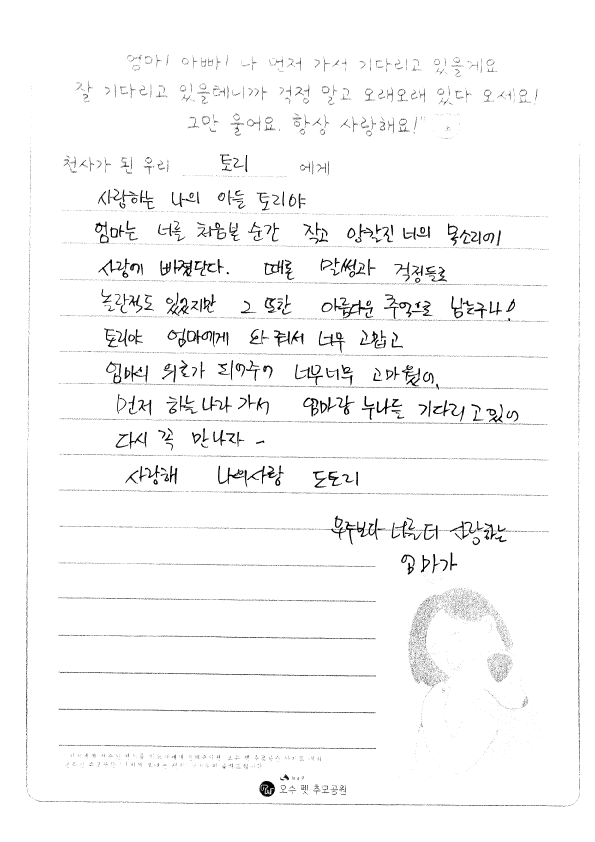 엄마! 아빠! 나 먼저 가서 기다리고 있을게요
잘 기다리고 있을테니까 걱정 말고 오래오래 있다 오세요!
그만 울어요. 항상 사랑해요!"
천사가 된 우리 토리 에게
사랑하는 나의 아들 토리야
엄마는 너를 처음본 순간 작고 앙칼진 너의 목소리에
사랑에 빠졌단다. 때론 말썽과 걱정들로
논란적도 있었지만 그 또한 아름다운 추억으로 남는구나!
토리야 엄마에게 와 줘서 너무 고맙고
엄마의 위로가 되어주어 너무너무 고마웠어.
먼저 하늘나라 가서 엄마랑 누나들 기다리고 있어
다시 꼭 만나자 -
사랑해 나의사랑 도토리
우주보다 너를 더 사랑하는
엄마가
오수 펫 추모공원